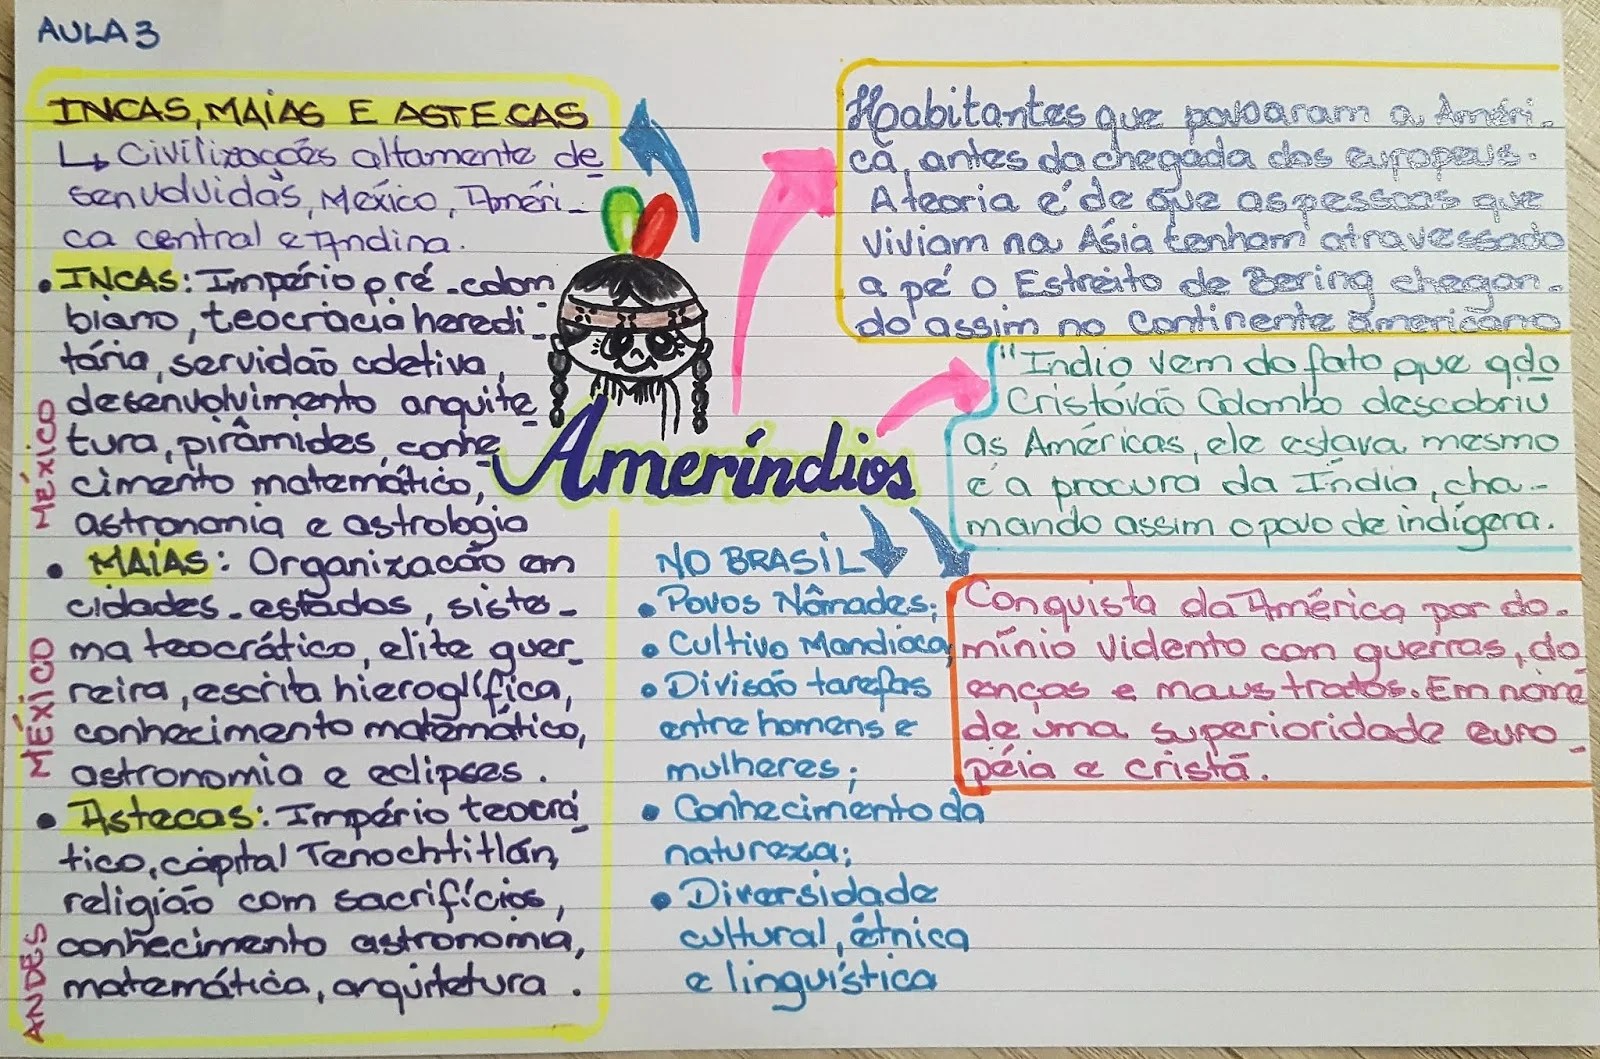 AULA 3
INCAS, MAIAS E ASTECAS
↳ Civilizações altamente de
senvolvidas, México, Améri-
ca central e Andina.
• INCAS: Império pré-colom
biano, teocracia heredi-
tária, servidão coletiva,
desenvolvimento arquite
tura, pirâmides, conhe-
cimento matemático,
astronomia e astrologia
• MAIAS: Organização em
cidades-estados, siste-
ma teocrático, elite guer-
reira, escrita hieroglífica,
conhecimento matemático,
astronomia e eclipses.
• Astecas: Império teocrá-
tico, capital Tenochtitlán,
religião com sacrifícios,
conhecimento astronomia,
matemática, arquitetura.
MÉXICO
MÉXICO
ANDES
Ameríndios
Habitantes que povoaram a Améri-
ca, antes da chegada dos europeus.
A teoria é de que as pessoas que
viviam na Ásia tenham atravessado
a pé o Estreito de Bering chegan-
do assim no continente americano
"Índio vem do fato que qdo
Cristóvão Colombo descobriu
as Américas, ele estava mesmo
é a procura da Índia, cha-
mando assim o povo de indígena.
NO BRASIL
• Povos Nômades;
• Cultivo Mandioca,
• Divisão tarefas
entre homens e
mulheres;
• Conhecimento da
natureza;
• Diversidade
cultural, étnica
e linguística
Conquista da América por do-
mínio violento com guerras, do
enças e maus tratos. Em nome
de uma superioridade euro-
péia e cristã.